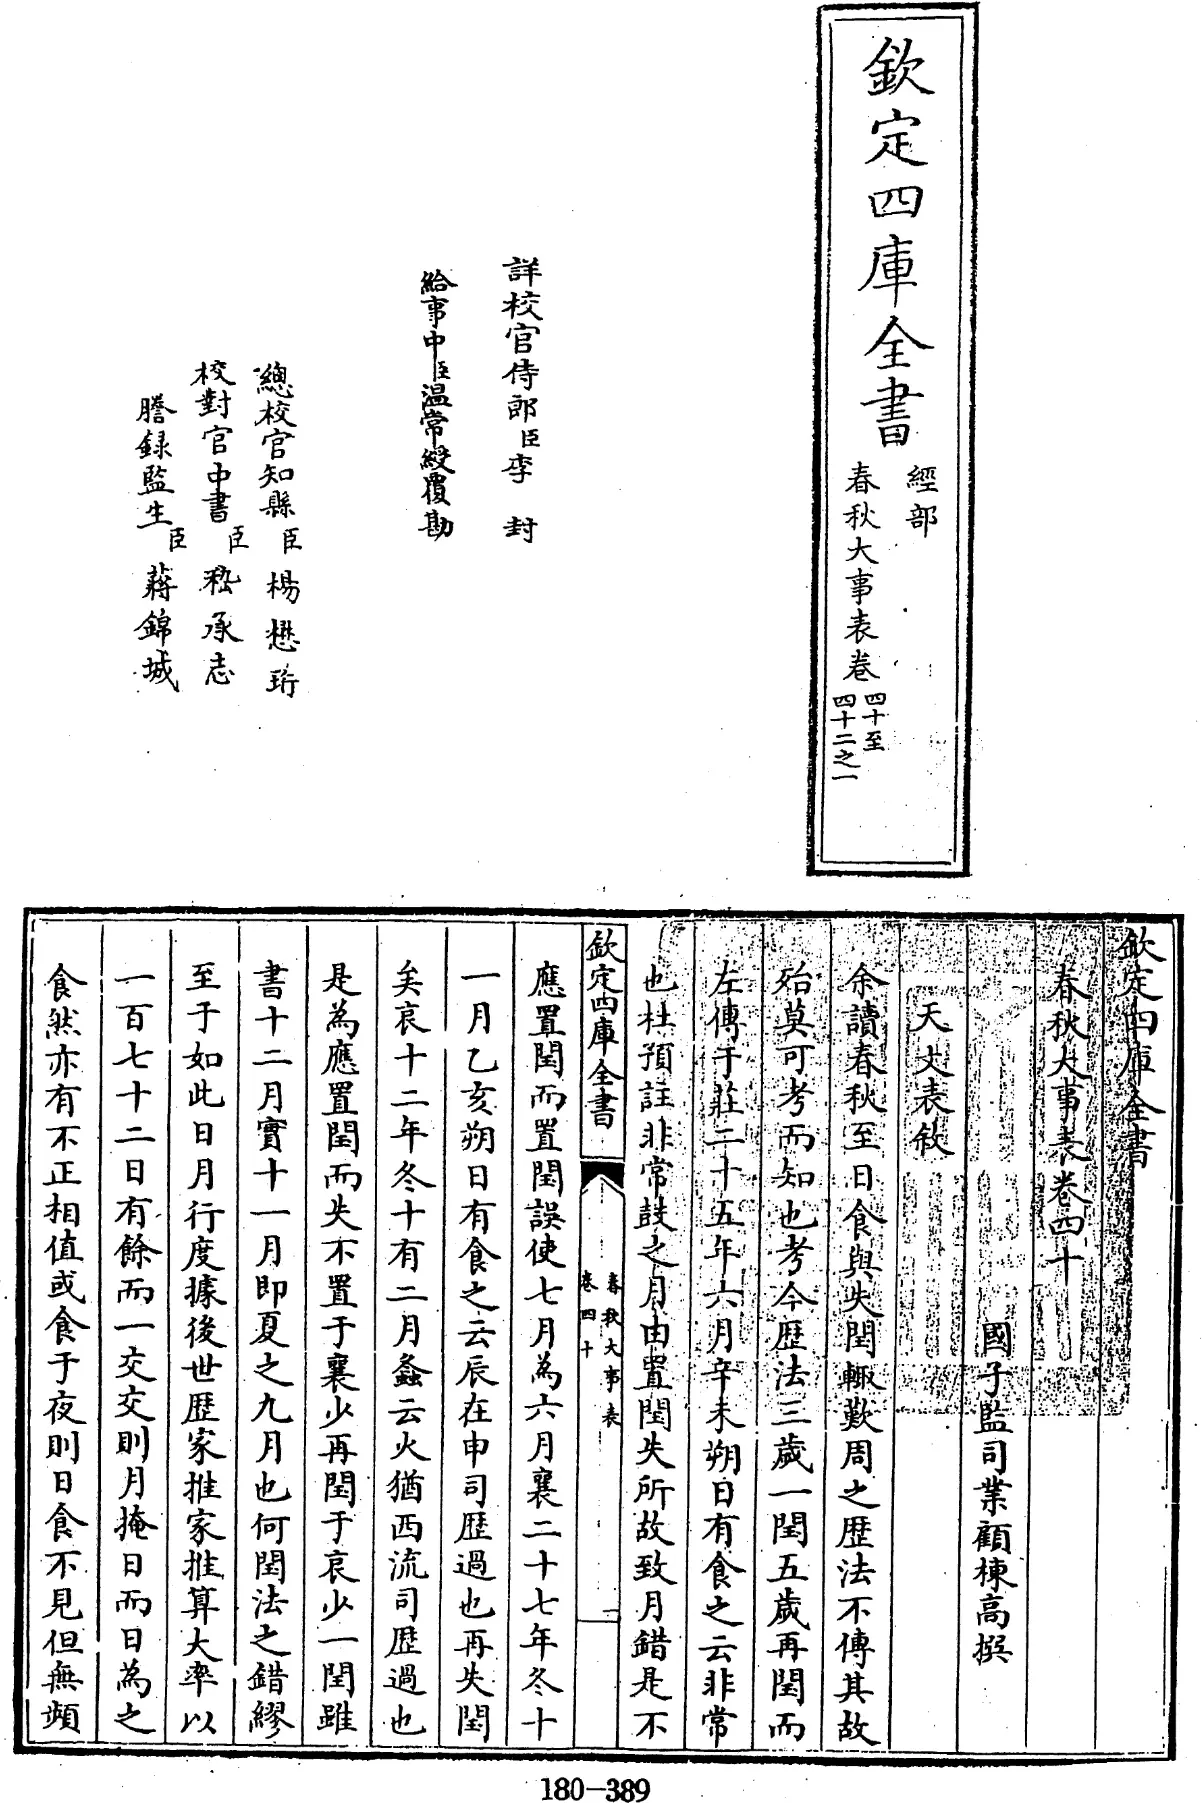 欽定四庫全書
經部
春秋大事表卷
四十至
四十二之一
詳校官侍郎臣李封
給事中臣溫常綬覆勘
總校官知縣臣楊懋珩
校對官中書臣嵇承志
謄録監生臣蔣錦城
欽定四庫全書
春秋大事表卷四十
國子監司業顧棟高撰
天文表敘
余讀春秋至日食與失閏輙歎周之歴法不傳其故
殆莫可考而知也考今歴法三歲一閏五歲再閏而
左傳于莊二十五年六月辛未朔日有食之云非常
也杜預註非常鼓之月由置閏失所故致月錯是不
欽定四庫全書
春秋大事表
卷四十
一
應置閏而置閏誤使七月為六月襄二十七年冬十
一月乙亥朔日有食之云辰在申司歴過也再失閏
矣哀十二年冬十有二月螽云火猶西流司歴過也
是為應置閏而失不置于襄少再閏于哀少一閏雖
書十二月實十一月即夏之九月也何閏法之錯繆
至于如此日月行度據後世歴家推家推算大率以
一百七十二日有餘而一交交則月掩日而日為之
食然亦有不正相值或食于夜則日食不見但無頻
180-389